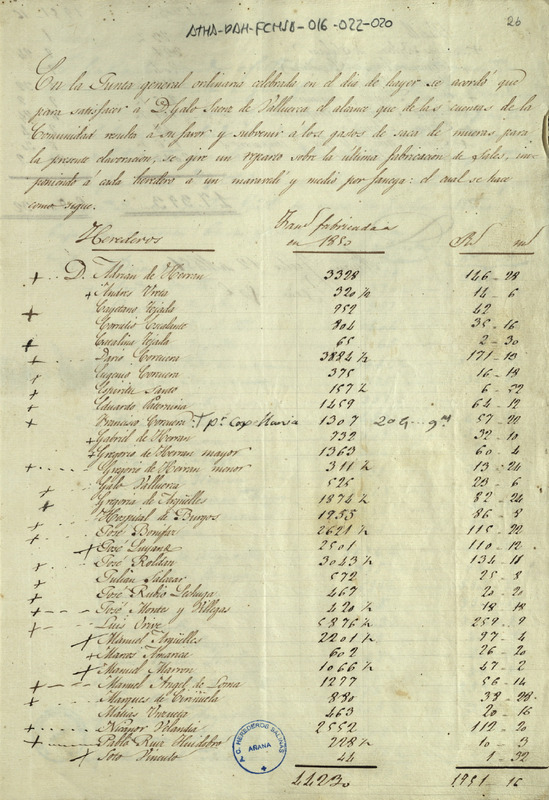 ATHA-DAH-FCMSB-016-022-020
26
En la Junta general ordinaria celebrada en el dia de hayer se acordó que
para satisfacer á D. Galo Saenz de Valluerca el alcance que de las cuentas de la
Comunidad resulta á su favor y subvenir á los gastos de saca de mueras para
la presente elavoracion, se gire un reparto sobre la última fabricacion de Sales, im-
poniendo á cada heredero á un maravedí y medio por fanega: el cual se hace
como sigue.
Herederos Fan.s fabricadas en 1850 Rs ms
D. Adrian de Herran 3328 146-28
Andres Urvea 320 ½ 14-6
Cayetano Tejada 952 42
Cornelio Escalante 804 35-16
Catalina Tejada 65 2-30
Dario Corcuera 3884 ½ 171-13
Eugenio Corcuera 375 16-18
Espiritu Santo 157 ½
Eduardo Paternina 1459 64-12
Francisco Corcuera p.r Capellania 1307 57-22
Gabriel de Herran 732 32-10
Gregorio de Herran mayor 1363 60-4
Gregorio de Herran menor 311 ½ 13-24
Galo Valluerca 525 23-6
Gregoria de Argüelles 1874 ½ 82-24
Hospital de Burgos 1955 86-8
José Bonifaz 2621 ½ 115-22
José Luyand 2501 110-12
José Roldan 3043 ½ 134-
Julian Salazar 572 25-8
José Rubio Lechuga 467 20-20
José Montes y Villegas 420 ½ 18-18
Luis Orive 5876 ½ 259-9
Manuel Argüelles 2201 ½ 97-4
Marcos Amariac 602 26-20
Manuel Marron 1066 ½ 47-2
Manuel Angel de Loma 1277 56-14
Marques de Ciriñuela 880 38-28
Matias 463 20-16
Nicanor Mendia 2552 112-20
Pablo Ruiz Huidobro 228 ½ 10-3
Soto Vinculo 44 1-32
44230 1951-16
C. HEREDEROS SALINAS
AÑANA